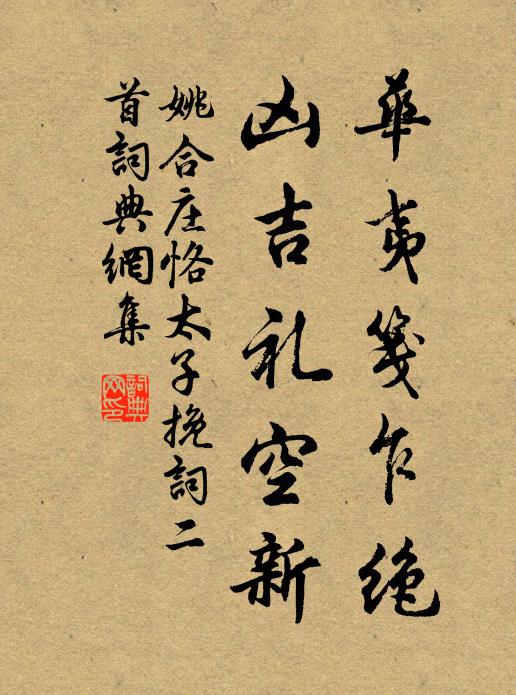 華夷箋乍絶
凶吉礼空新
姚合庄恪太子挽詞二
首詞典網集
詞典網印